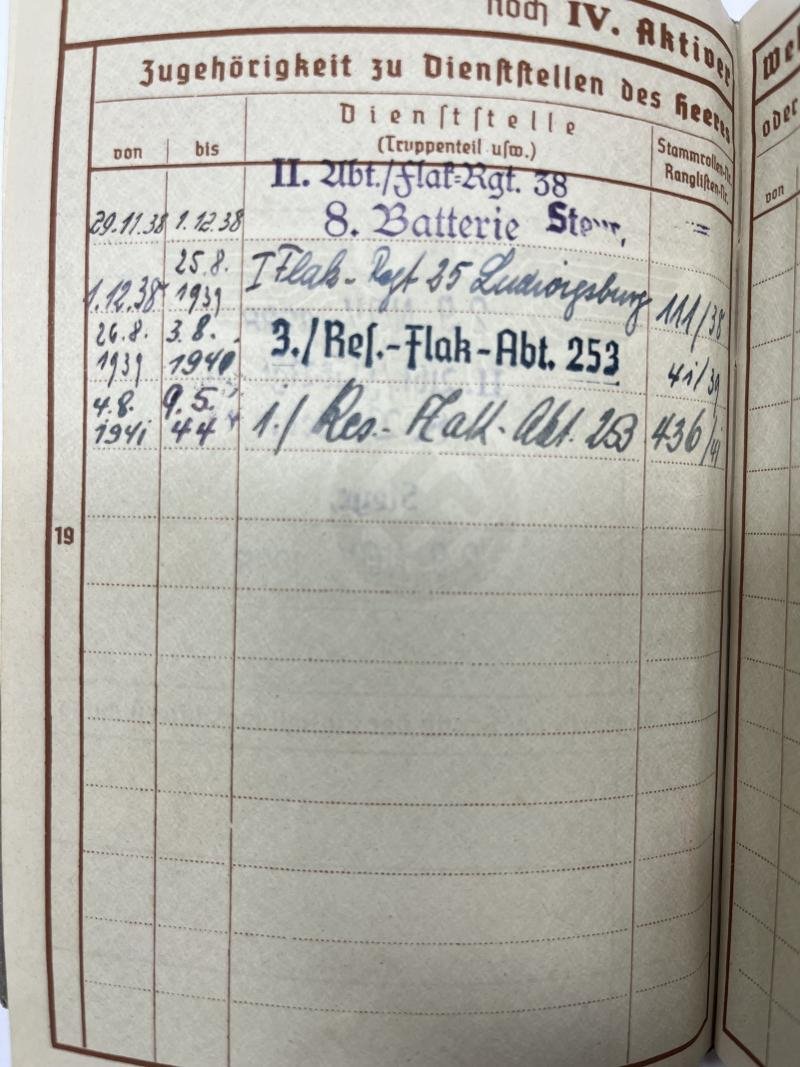 noch IV. Aktiver
Zugehörigkeit zu Dienststellen des Heeres
von
bis
Dienststelle
(Truppenteil usw.)
Stammrollen-Nr.
Ranglisten-Nr.
II. Abt./Flak-Rgt. 38
29.11.38 1.12.38 8. Batterie Steyr,
1.12.38 25.8. 1939 I Flak-Rgt 25 Ludwigsburg 111/38
26.8. 1939 3.8. 1940 3./Res.-Flak-Abt. 253 41/39
4.8. 1941 9.5. 44 1./ Res.-Flak-Abt. 253 436/41
19
Steyr,
oder
von